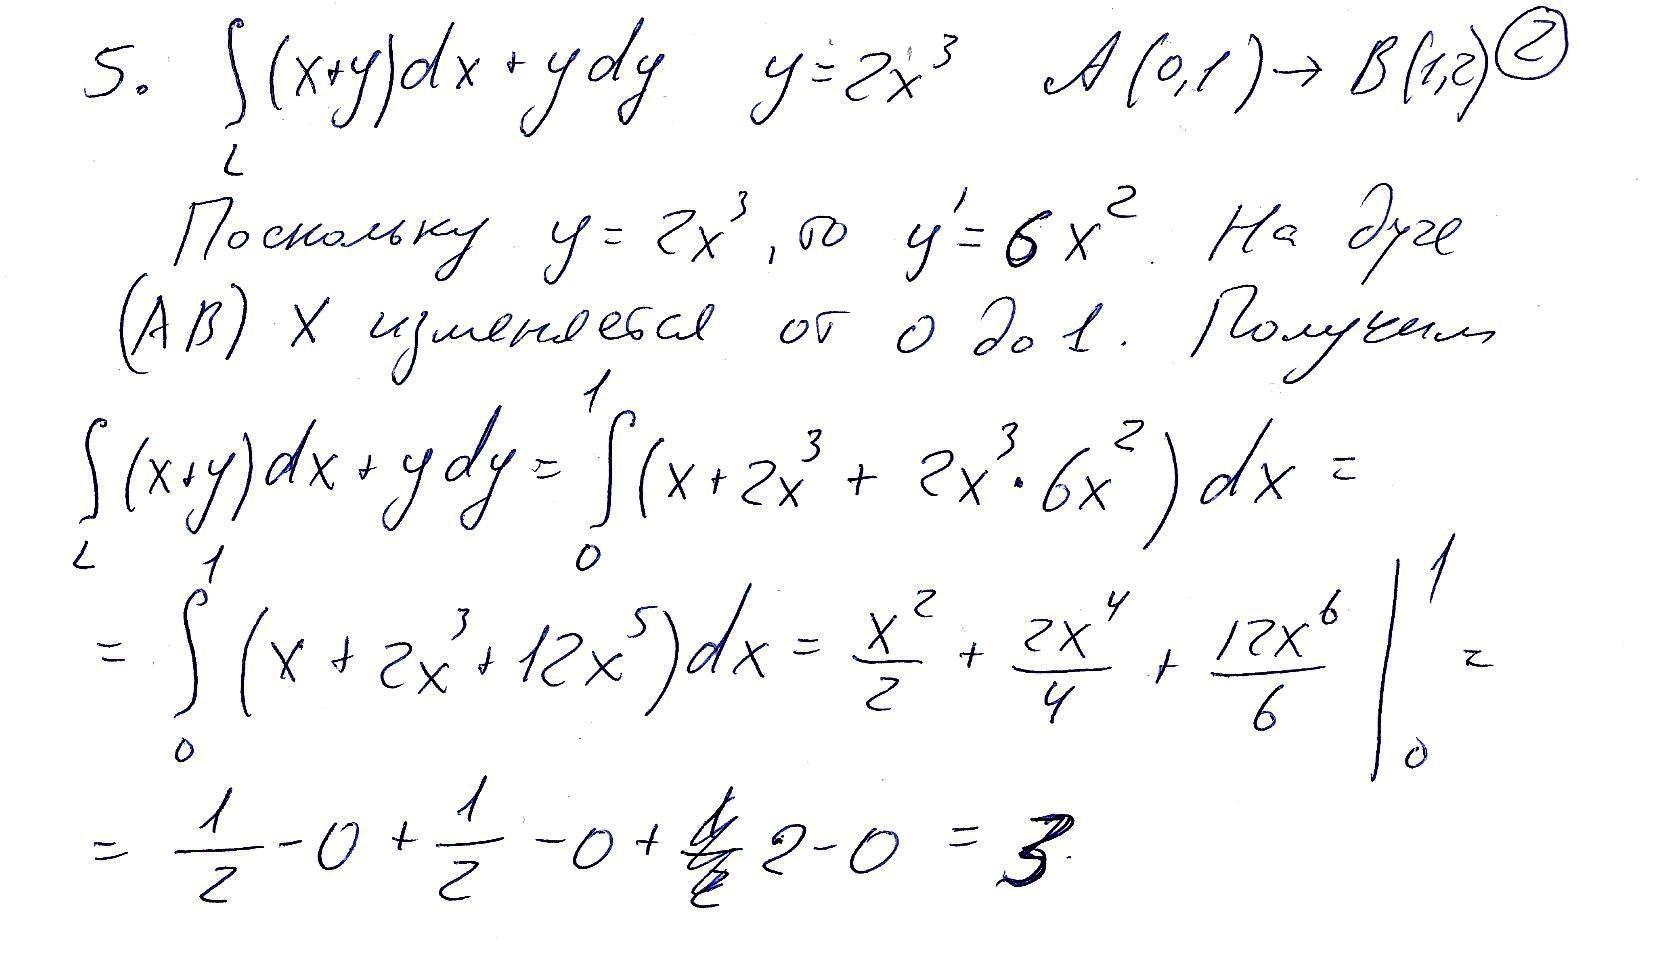 5. ∫_L (x+y)dx + ydy y = 2x³ A(0,1) → B(1,2) ②
Поскольку y = 2x³, то y' = 6x². На дуге
(AB) x изменяется от 0 до 1. Получим
∫_L (x+y)dx + ydy = ∫₀¹ (x + 2x³ + 2x³ · 6x²) dx =
= ∫₀¹ (x + 2x³ + 12x⁵) dx = x²/2 + 2x⁴/4 + 12x⁶/6 |₀¹ =
= 1/2 - 0 + 1/2 - 0 + 2 - 0 = 3.